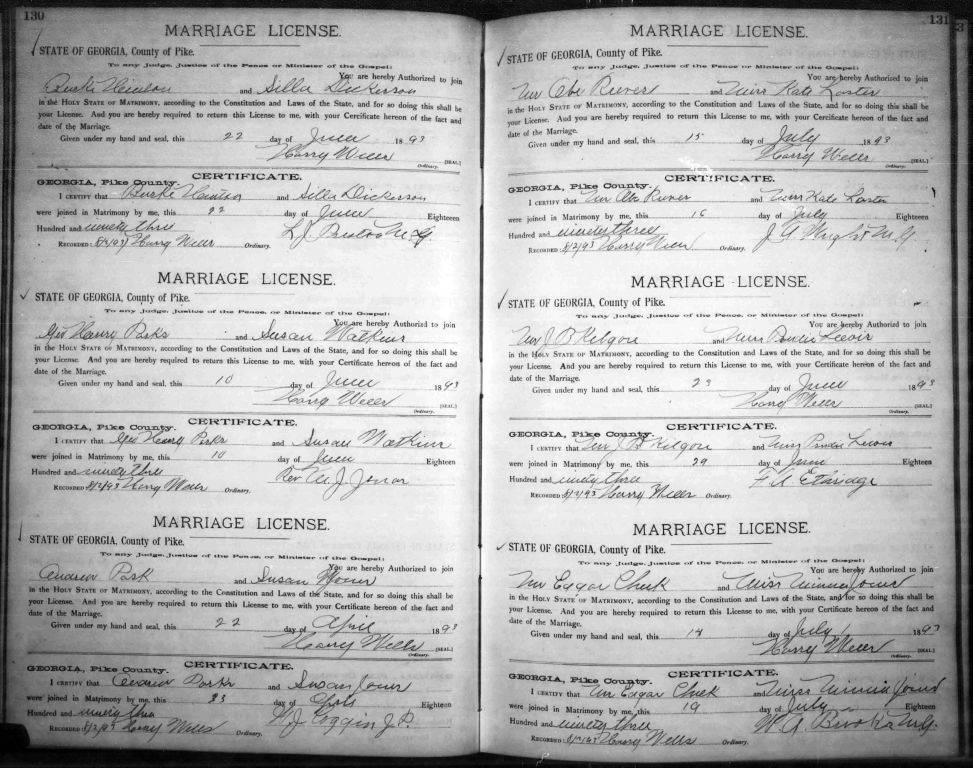 130
MARRIAGE LICENSE.
STATE OF GEORGIA, County of Pike.
To any Judge, Justice of the Peace or Minister of the Gospel:
You are hereby Authorized to join
Burke and Silla Dickerson
in the HOLY STATE OF MATRIMONY, according to the Constitution and Laws of the State, and for so doing this shall be
your License. And you are hereby required to return this License to me, with your Certificate hereon of the fact and
date of the Marriage.
Given under my hand and seal, this 22 day of June 1893
Harry Wells [SEAL.]
Ordinary.
CERTIFICATE.
GEORGIA, Pike County.
I CERTIFY that Burke and Silla Dickerson
were joined in Matrimony by me, this 22 day of June Eighteen
Hundred and ninety three
RECORDED 8/2/93 Harry Wells Ordinary.
MARRIAGE LICENSE.
STATE OF GEORGIA, County of Pike.
To any Judge, Justice of the Peace, or Minister of the Gospel:
You are hereby Authorized to join
Geo Henry Parks and Susan Watkins
in the HOLY STATE OF MATRIMONY, according to the Constitution and Laws of the State, and for so doing this shall be
your License. And you are hereby required to return this License to me, with your Certificate hereon of the fact and
date of the Marriage.
Given under my hand and seal, this 10 day of June 1893
Harry Wells [SEAL.]
Ordinary.
CERTIFICATE.
GEORGIA, Pike County.
I CERTIFY that Geo Henry Parks and Susan Watkins
were joined in Matrimony by me, this 10 day of June Eighteen
Hundred and ninety three Rev M. J. Jones
RECORDED 8/2/93 Harry Wells Ordinary.
MARRIAGE LICENSE.
STATE OF GEORGIA, County of Pike.
To any Judge, Justice of the Peace, or Minister of the Gospel:
You are hereby Authorized to join
Andrew Park and Susan
in the HOLY STATE OF MATRIMONY, according to the Constitution and Laws of the State, and for so doing this shall be
your License. And you are hereby required to return this License to me, with your Certificate hereon of the fact and
date of the Marriage.
Given under my hand and seal, this 22 day of April 1893
Harry Wells [SEAL.]
Ordinary.
CERTIFICATE.
GEORGIA, Pike County.
I CERTIFY that Andrew Parks and Susan Jones
were joined in Matrimony by me, this 23 day of Eighteen
Hundred and ninety three W. J. Coggin J.P.
RECORDED 8/2/93 Harry Wells Ordinary.
131
MARRIAGE LICENSE.
STATE OF GEORGIA, County of Pike.
To any Judge, Justice of the Peace, or Minister of the Gospel:
You are hereby Authorized to join
Mr Abe and Miss Kate
in the HOLY STATE OF MATRIMONY, according to the Constitution and Laws of the State, and for so doing this shall be
your License. And you are hereby required to return this License to me, with your Certificate hereon of the fact and
date of the Marriage.
Given under my hand and seal, this 15 day of July 1893
Harry Wells [SEAL.]
Ordinary.
CERTIFICATE.
GEORGIA, Pike County.
I CERTIFY that Mr Abe and Miss Kate
were joined in Matrimony by me, this 16 day of July Eighteen
Hundred and ninety three J A Wright M.G.
RECORDED 8/2/93 Harry Wells Ordinary.
MARRIAGE LICENSE.
STATE OF GEORGIA, County of Pike.
To any Judge, Justice of the Peace, or Minister of the Gospel:
You are hereby Authorized to join
Mr J B Kilgore and Miss
in the HOLY STATE OF MATRIMONY, according to the Constitution and Laws of the State, and for so doing this shall be
your License. And you are hereby required to return this License to me, with your Certificate hereon of the fact and
date of the Marriage.
Given under my hand and seal, this 23 day of June 1893
Harry Wells [SEAL.]
Ordinary.
CERTIFICATE.
GEORGIA, Pike County.
I CERTIFY that Mr J B Kilgore and Miss
were joined in Matrimony by me, this 29 day of June Eighteen
Hundred and ninety three
RECORDED 8/2/93 Harry Wells Ordinary.
MARRIAGE LICENSE.
STATE OF GEORGIA, County of Pike.
To any Judge, Justice of the Peace, or Minister of the Gospel:
You are hereby Authorized to join
Mr Edgar Cheek and Miss Minnie Jones
in the HOLY STATE OF MATRIMONY, according to the Constitution and Laws of the State, and for so doing this shall be
your License. And you are hereby required to return this License to me, with your Certificate hereon of the fact and
date of the Marriage.
Given under my hand and seal, this 14 day of July 1893
Harry Wells [SEAL.]
Ordinary.
CERTIFICATE.
GEORGIA, Pike County.
I CERTIFY that Mr Edgar Cheek and Miss Minnie Jones
were joined in Matrimony by me, this 19 day of July Eighteen
Hundred and ninety three W. A. Brooks M.G.
RECORDED Harry Wells Ordinary.